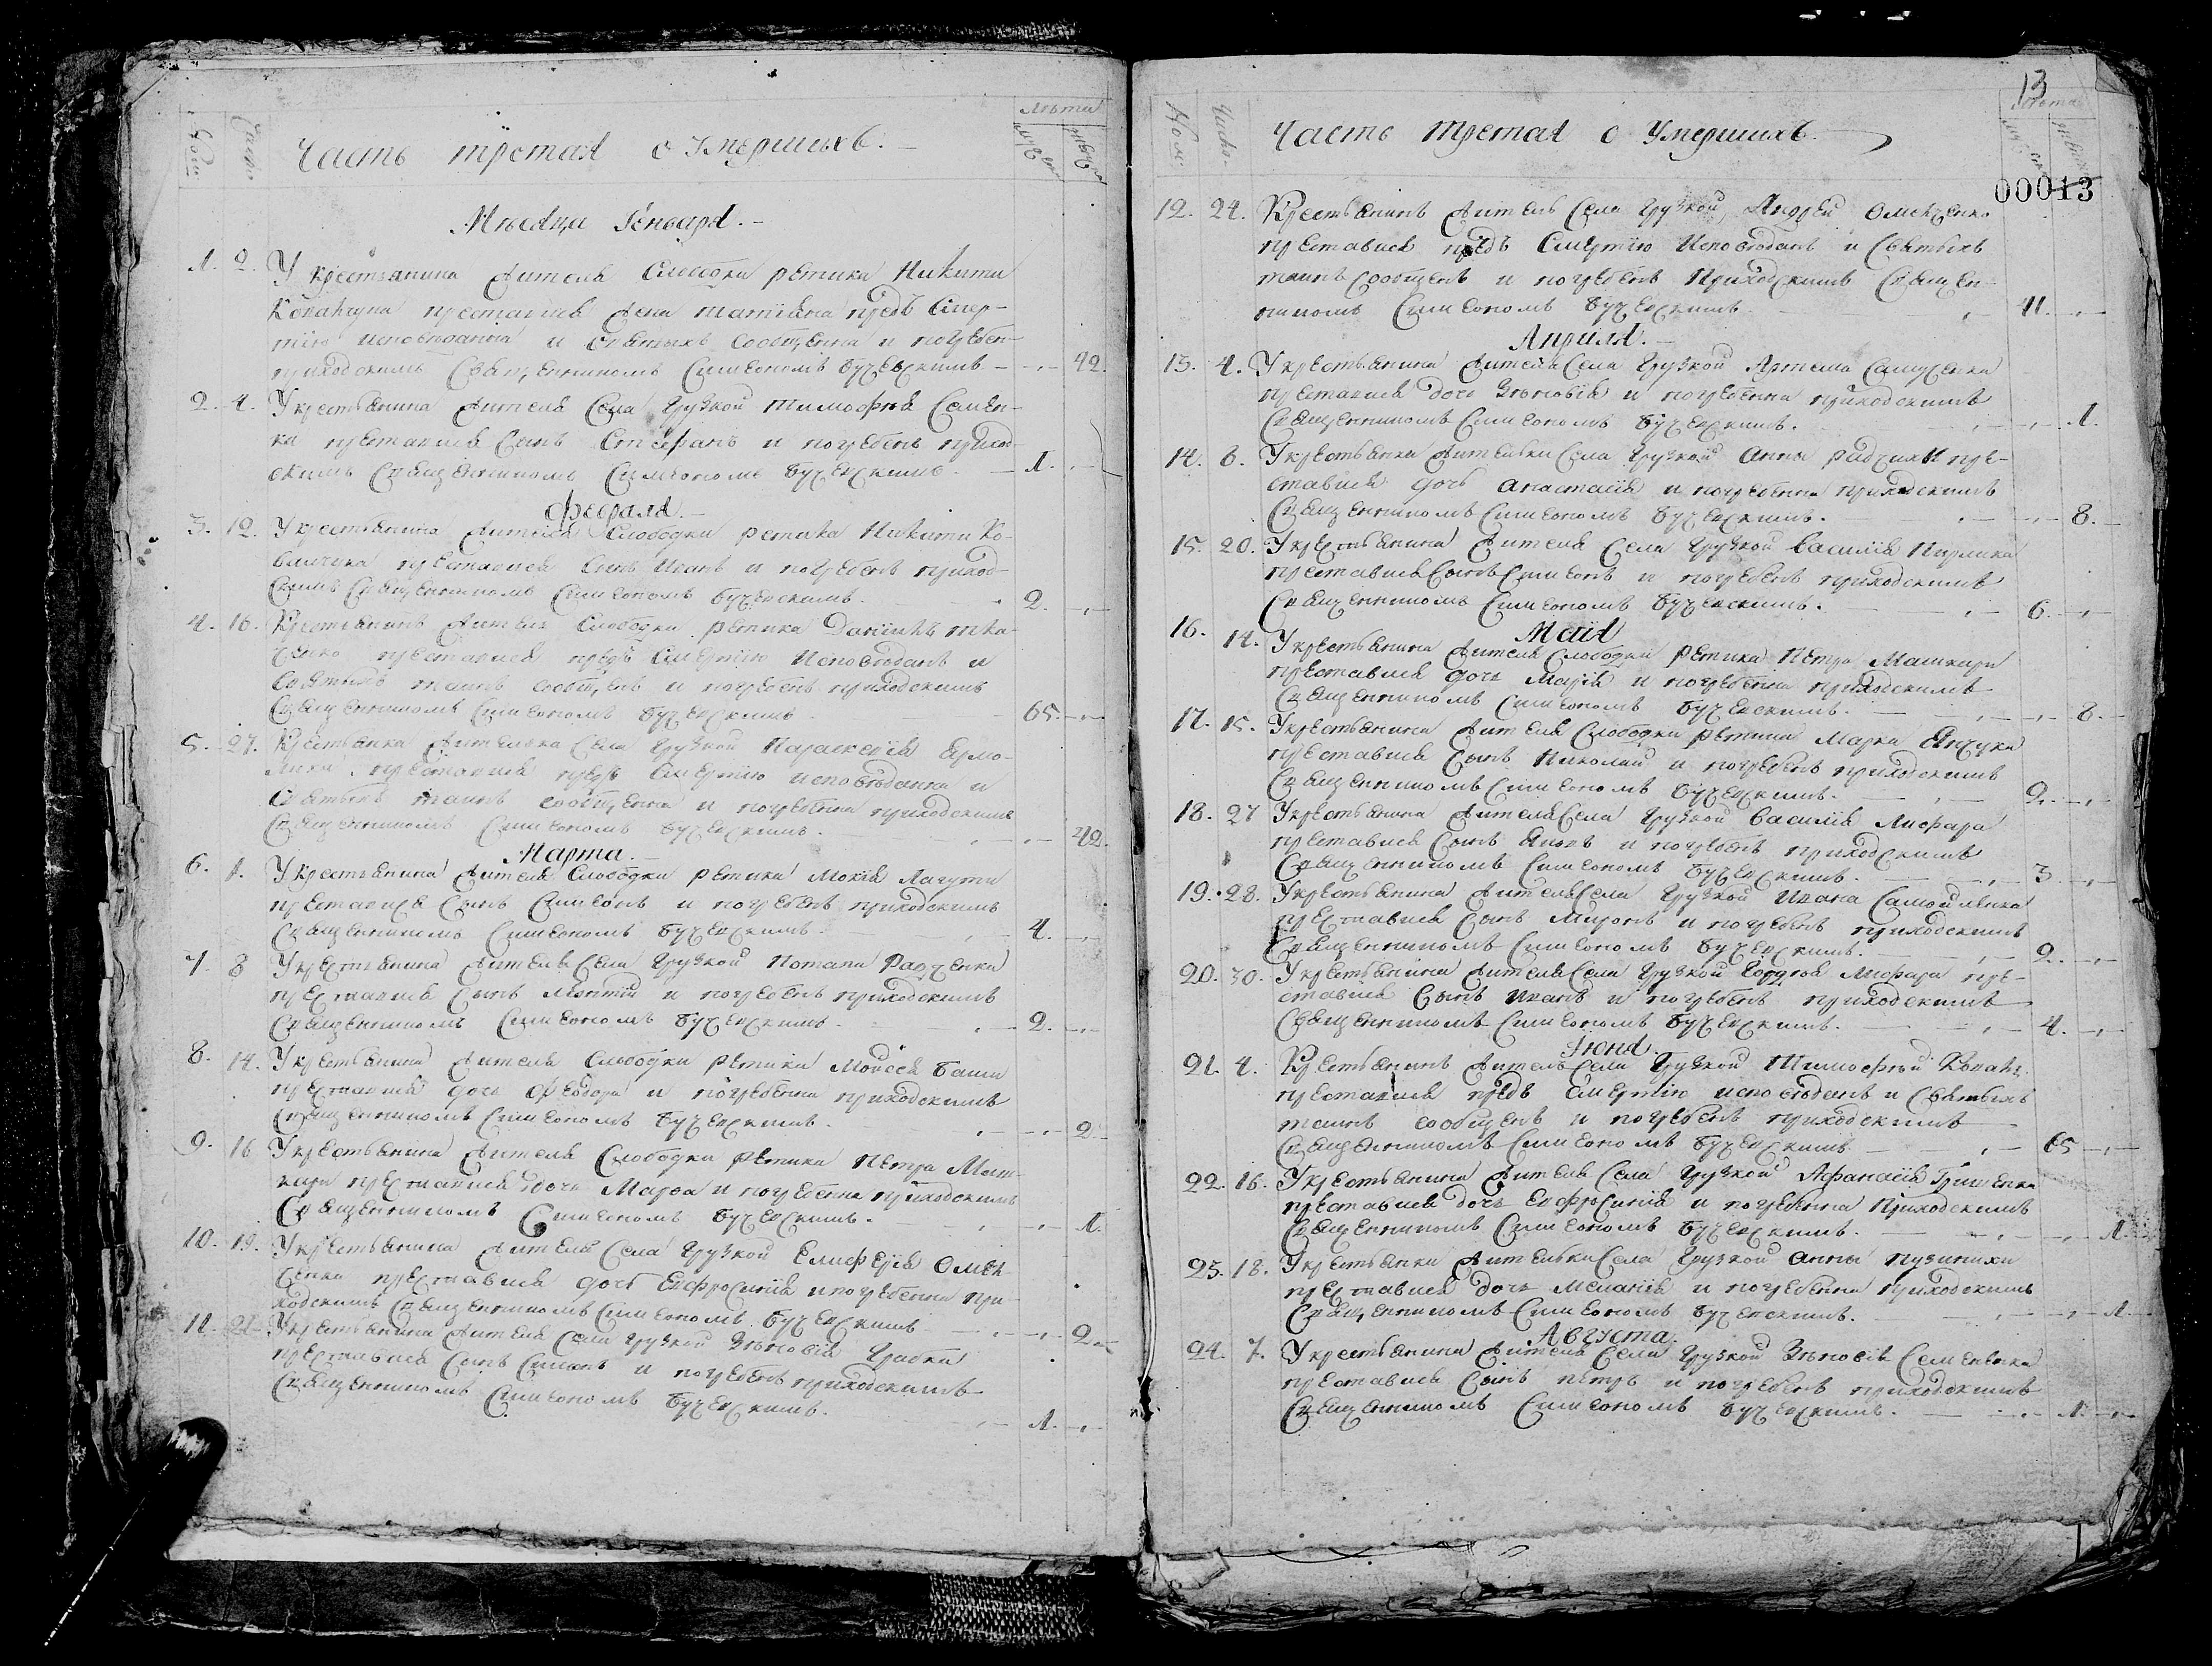 Лѣта
Часть третая о Умершихъ.
Мѣсяца Генваря.
1. 2. У крестьянина жителя Слободки Ретика Никити
преставися жена Татіяна предъ Смер-
тію исповѣданна и Святыхъ сообщенна и погребен-
приходскимъ Священникомъ Симеономъ Бучевскимъ 42.
2. 4. У крестьянина жителя Села Грузкой Тимофѣя Семен-
ка преставися Сынъ Стефанъ и погребенъ приход-
скимъ Священникомъ Симеономъ Бучевскимъ. 1.
Февраля.
3. 12. У крестьянина жителя Слободки Ретика Никити Ко-
преставися Сынъ Иванъ и погребенъ приход-
скимъ Священникомъ Симеономъ Бучевскимъ. 2.
4. 16. Крестьянинъ житель Слободки Ретика Даніилъ Тка-
ченко преставися предъ Смертію Исповѣданъ и
Святыхъ таинъ сообщенъ и погребенъ приходскимъ
Священникомъ Симеономъ Бучевскимъ 65.
5. 27. Крестьянка жителька Села Грузкой Параскевія Ермо-
преставися предъ Смертію исповѣданна и
Святыхъ таинъ сообщенна и погребенна приходскимъ
Священникомъ Симеономъ Бучевскимъ. 42.
Марта.
6. 1. У крестьянина жителя Слободки Ретика Мокія Лагути
преставися Сынъ Симеонъ и погребенъ приходскимъ
Священникомъ Симеономъ Бучевскимъ. 4.
7. 8 У крестьянина жителя Села Грузкой Потапа Радченка
преставися Сынъ и погребенъ приходскимъ
Священникомъ Симеономъ Бучевскимъ. 2.
8. 14. У крестьянина жителя Слободки Ретика Моисея Баши
преставися дочь Феодора и погребенна приходскимъ
Священникомъ Симеономъ Бучевскимъ. 2.
9. 16 У крестьянина жителя Слободки Ретика Петра Маш-
кари преставися дочь Марѳа и погребенна приходскимъ
Священникомъ Симеономъ Бучевскимъ. 1.
10. 19. У крестьянина жителя Села Грузкой Елиферія Омел-
ченка преставися дочь Евфросинія и погребенна при-
ходскимъ Священникомъ Симеономъ Бучевскимъ 2.
11. 21. У крестьянина жителя Села Грузкой Зѣновія
преставися Сынъ и погребенъ приходскимъ
Священникомъ Симеономъ Бучевскимъ. 1.
13
Ном. Число.
Часть третая о Умершихъ.
00013
12. 24. Крестьянинъ житель Села Грузкой, Андрей Омелченко
преставися предъ Смертію Исповѣданъ и Святыхъ
таинъ сообщенъ и погребенъ Приходскимъ Священ-
никомъ Симеономъ Бучевскимъ
Априля.
13. 4. У крестьянина жителя Села Грузкой Артема Самусенка
преставися дочь Зѣновія и погребенна приходскимъ
Священникомъ Симеономъ Бучевскимъ. 1.
14. 6. У крестьянки жительки Села Грузкой Анны Радчихи пре-
ставися дочь Анастасія и погребенна приходскимъ
Священникомъ Симеономъ Бучевскимъ. 8.
15. 20. У крестьянина жителя Села Грузкой Василія
преставися Сынъ Симеонъ и погребенъ приходскимъ
Священникомъ Симеономъ Бучевскимъ. 6.
Маія
16. 14. У крестьянина жителя Слободки Ретика Петра Машкари
преставися дочь Марія и погребенна приходскимъ
Священникомъ Симеономъ Бучевскимъ. 8.
17. 15. У крестьянина жителя Слободки Ретика Марка Янчука
преставися Сынъ Николай и погребенъ приходскимъ
Священникомъ Симеономъ Бучевскимъ. 2.
18. 27 У крестьянина жителя Села Грузкой Василія
преставися Сынъ Яковъ и погребенъ приходскимъ
Священникомъ Симеономъ Бучевскимъ. 3
19. 28. У крестьянина жителя Села Грузкой Ивана Самойленка
преставися Сынъ Миронъ и погребенъ приходскимъ
Священникомъ Симеономъ Бучевскимъ. 2.
20. 30. У крестьянина жителя Села Грузкой Гордѣя пре-
ставися Сынъ Иванъ и погребенъ приходскимъ
Священникомъ Симеономъ Бучевскимъ. 4.
Іюня.
21. 4. Крестьянинъ житель Села Грузкой Тимофѣй
преставися предъ Смертію исповѣданъ и Святыхъ
таинъ сообщенъ и погребенъ приходскимъ
Священникомъ Симеономъ Бучевскимъ 65
22. 16. У крестьянина жителя Села Грузкой Афанасія Гриценка
преставися дочь Евфросинія и погребенна Приходскимъ
Священникомъ Симеономъ Бучевскимъ. 1.
23. 18. У крестьянки жительки Села Грузкой Анны
преставися дочь Меланія и погребенна Приходскимъ
Священникомъ Симеономъ Бучевскимъ. 1.
Августа.
24. 7. У крестьянина жителя Села Грузкой Зѣновія Семененка
преставися Сынъ Петръ и погребенъ приходскимъ
Священникомъ Симеономъ Бучевскимъ. 1.